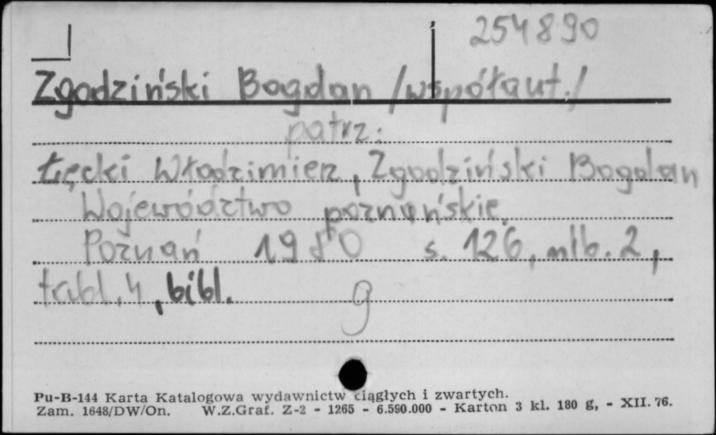 254890
Zgodziński Bogdan /współaut./
patrz:
Łęcki Włodzimierz, Zgodziński Bogdan
Województwo poznańskie.
Poznań 1980 s. 126, nlb. 2,
tabl. 4, bibl.
g
Pu-B-144 Karta Katalogowa wydawnictw ciągłych i zwartych.
Zam. 1648/DW/On. W.Z.Graf. Z-2 - 1265 - 6.590.000 - Karton 3 kl. 180 g, - XII. 76.